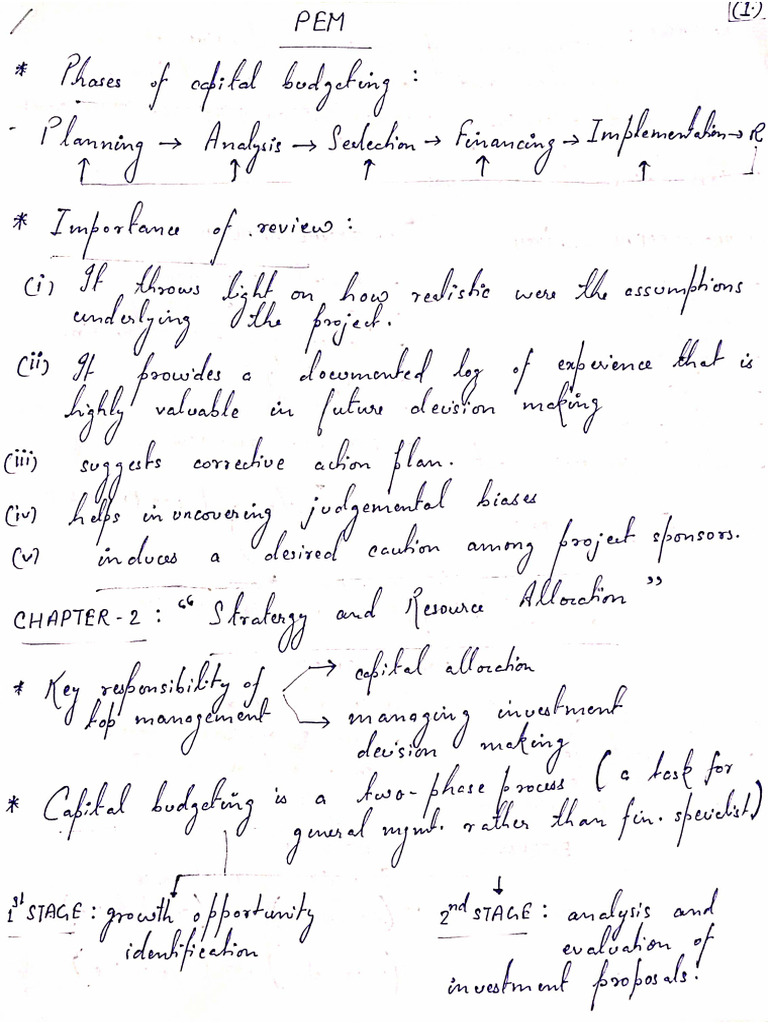 (1.)
PEM
* Phases of capital budgeting :
- Planning → Analysis → Selection → Financing → Implementation → R
* Importance of review :
(i) It throws light on how realistic were the assumptions
underlying the project.
(ii) It provides a documented log of experience that is
highly valuable in future decision making
(iii) suggests corrective action plan.
(iv) helps in uncovering judgemental biases
(v) induces a desired caution among project sponsors.
CHAPTER-2 : "Stratergy and Resource Allocation"
* Key responsibility of top management
→ capital allocation
→ managing investment
decision making
* Capital budgeting is a two-phase process (a task for
general mgmt. rather than fin. specialist)
1st STAGE : growth opportunity
identification
2nd STAGE : analysis and
evaluation of
investment proposals.